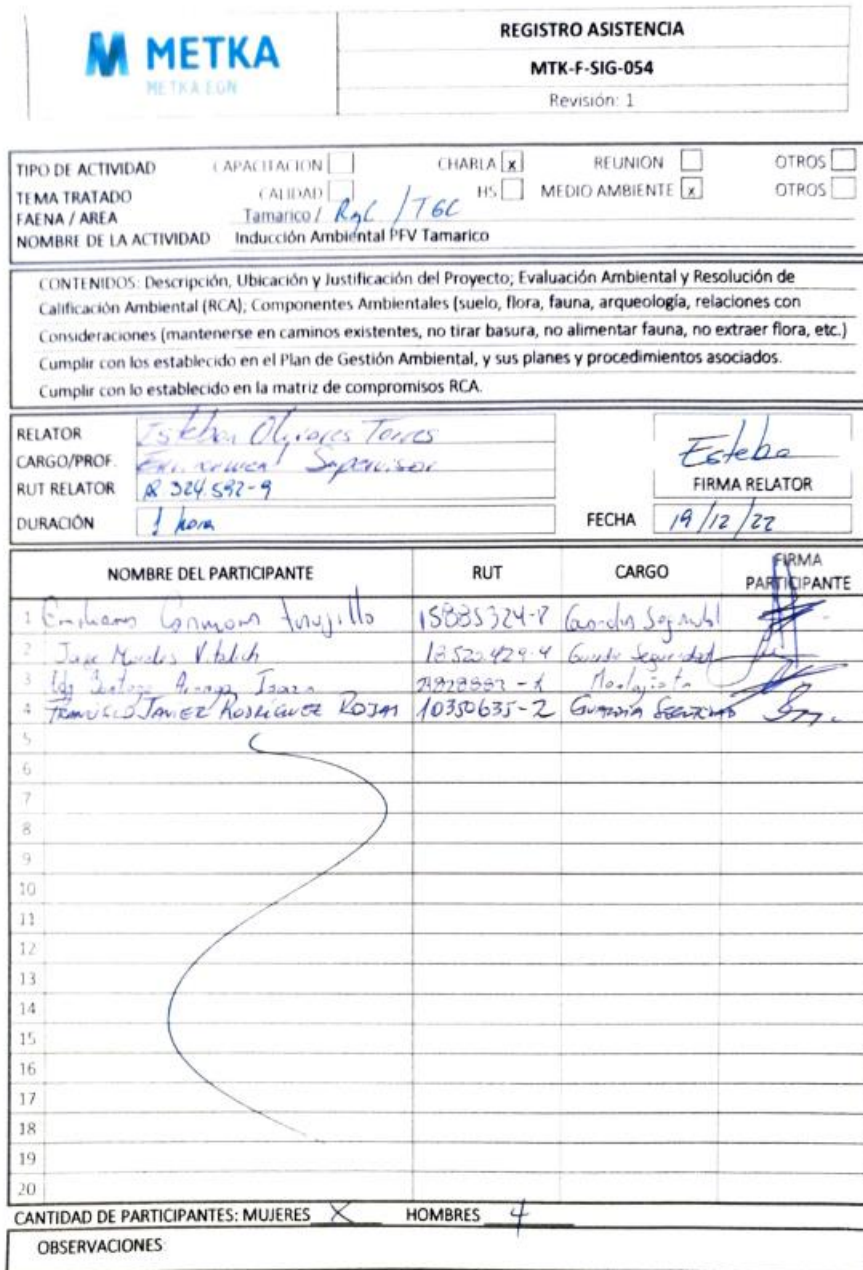 METKA
METKA EGN
REGISTRO ASISTENCIA
MTK-F-SIG-054
Revisión: 1
TIPO DE ACTIVIDAD CAPACITACION CHARLA x REUNION OTROS
TEMA TRATADO CALIDAD HS MEDIO AMBIENTE x OTROS
FAENA / AREA Tamarico / RgC / TGC
NOMBRE DE LA ACTIVIDAD Inducción Ambiental PFV Tamarico
CONTENIDOS: Descripción, Ubicación y Justificación del Proyecto; Evaluación Ambiental y Resolución de
Calificación Ambiental (RCA); Componentes Ambientales (suelo, flora, fauna, arqueología, relaciones con
Consideraciones (mantenerse en caminos existentes, no tirar basura, no alimentar fauna, no extraer flora, etc.)
Cumplir con los establecido en el Plan de Gestión Ambiental, y sus planes y procedimientos asociados.
Cumplir con lo establecido en la matriz de compromisos RCA.
RELATOR Esteban Olivares Torres
CARGO/PROF. Supervisor
RUT RELATOR 324.592-9
Esteba
FIRMA RELATOR
DURACIÓN 1 hora FECHA 19/12/22
NOMBRE DEL PARTICIPANTE RUT CARGO FIRMA PARTICIPANTE
1 Trujillo
2 Morales 18.520.429-4 Guardia Seguridad
3
4 FRANCISCO JAVIER RODRÍGUEZ ROJAS 10350635-2 GUARDIA
5
6
7
8
9
10
11
12
13
14
15
16
17
18
19
20
CANTIDAD DE PARTICIPANTES: MUJERES X HOMBRES 4
OBSERVACIONES